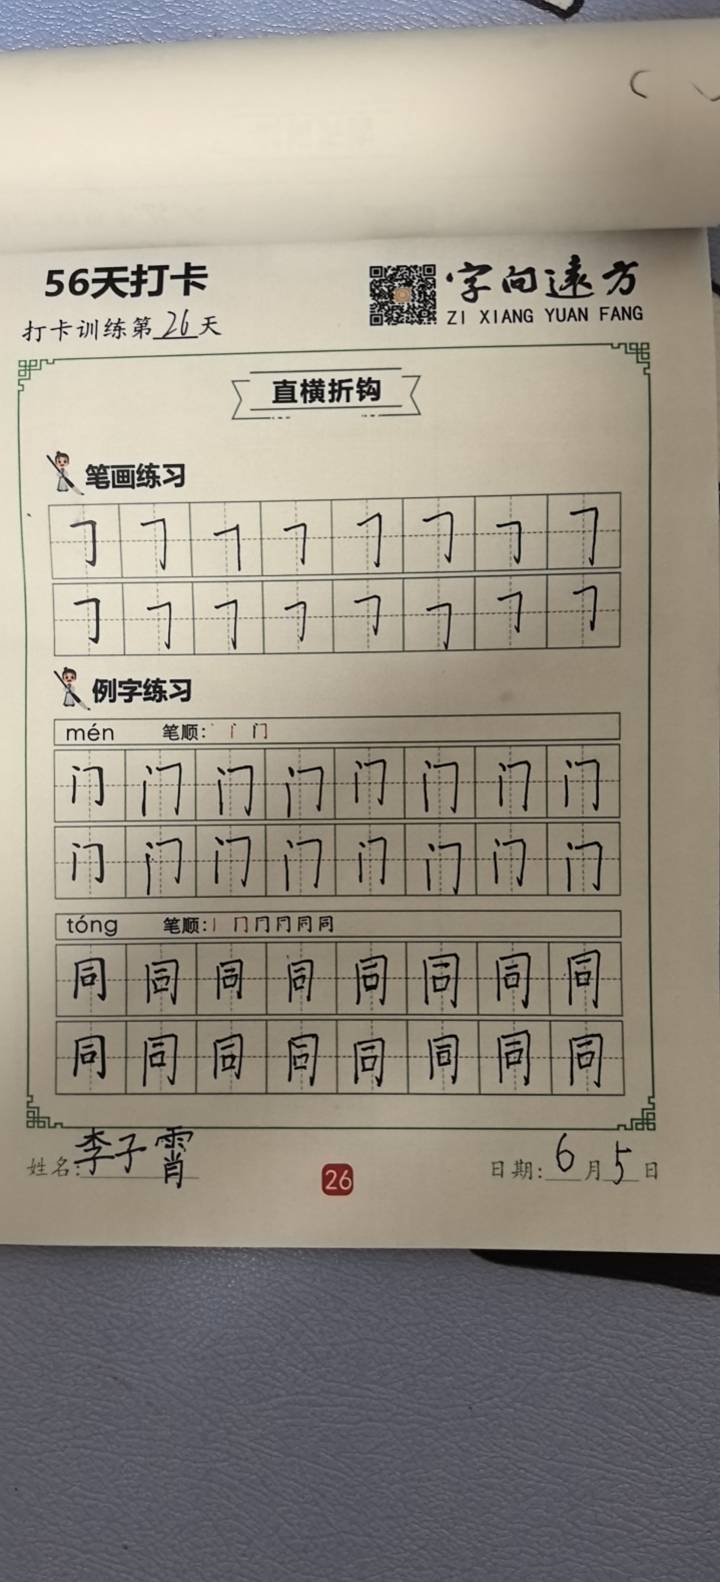 56天打卡
字向遠方
ZI XIANG YUAN FANG
打卡训练第26天
直横折钩
笔画练习
㇆㇆㇆㇆㇆㇆㇆㇆
㇆㇆㇆㇆㇆㇆㇆㇆
例字练习
mén 笔顺: 丶 冂 门
门门门门门门门门
门门门门门门门门
tóng 笔顺: 丨 冂 冂 冂 同 同
同同同同同同同同
同同同同同同同同
姓名:李子霄
26
日期:6月5日